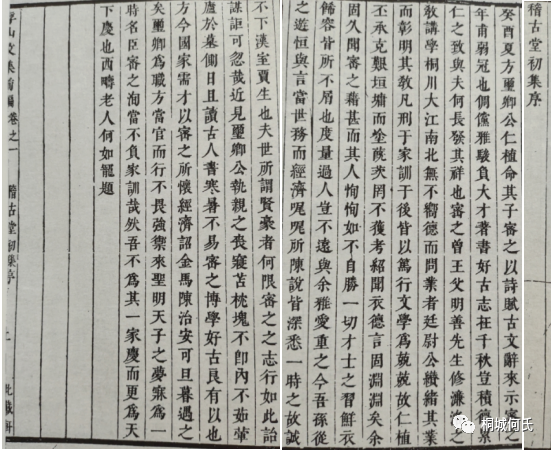 稽古堂初集序
癸酉夏方璽卿公仁植命其子審之以詩賦古文辭來示審之
年甫弱冠也倜儻雅駿負大才著書好古志在千秋豈積德累
仁之致與夫何長發其祥也審之曾王父明善先生修濂洛之
敎講學桐川大江南北無不嚮德而問業者廷尉公纘緒其業
而彰明其敎凡刑于家訓于後皆以篤行文學為兢兢故仁植
丕承克艱垣墉而塗茨夾罔不獲考紹聞衣德言固淵淵矣余
固久聞審之藉甚而其人恂恂如不自勝一切才士之習鮮衣
飾容皆所不屑也度量過人豈不遠與余雅愛重之今吾孫從
之遊恒與言當世務而經濟呢呢所陳說皆深悉一時之故誠
不下漢室賈生也夫世所謂賢豪者何限審之之志行如此詒
謀詎可忽哉近見璽卿公執親之喪寢苫枕塊不卽內不茹葷
廬於墓側日且讀古人書寒暑不易審之博學好古良有以也
方今國家需才以審之所懷經濟詔金馬陳治安可旦暮遇之
矣璽卿為職方當官而行不畏強禦來聖明天子之夢寐為一
時名臣審之洵當不負家訓哉然吾不為其一家慶而更為天
下慶也西疇老人何如寵題
浮山文集前編卷之一 稽古堂初集序 二 此藏軒
桐城何氏